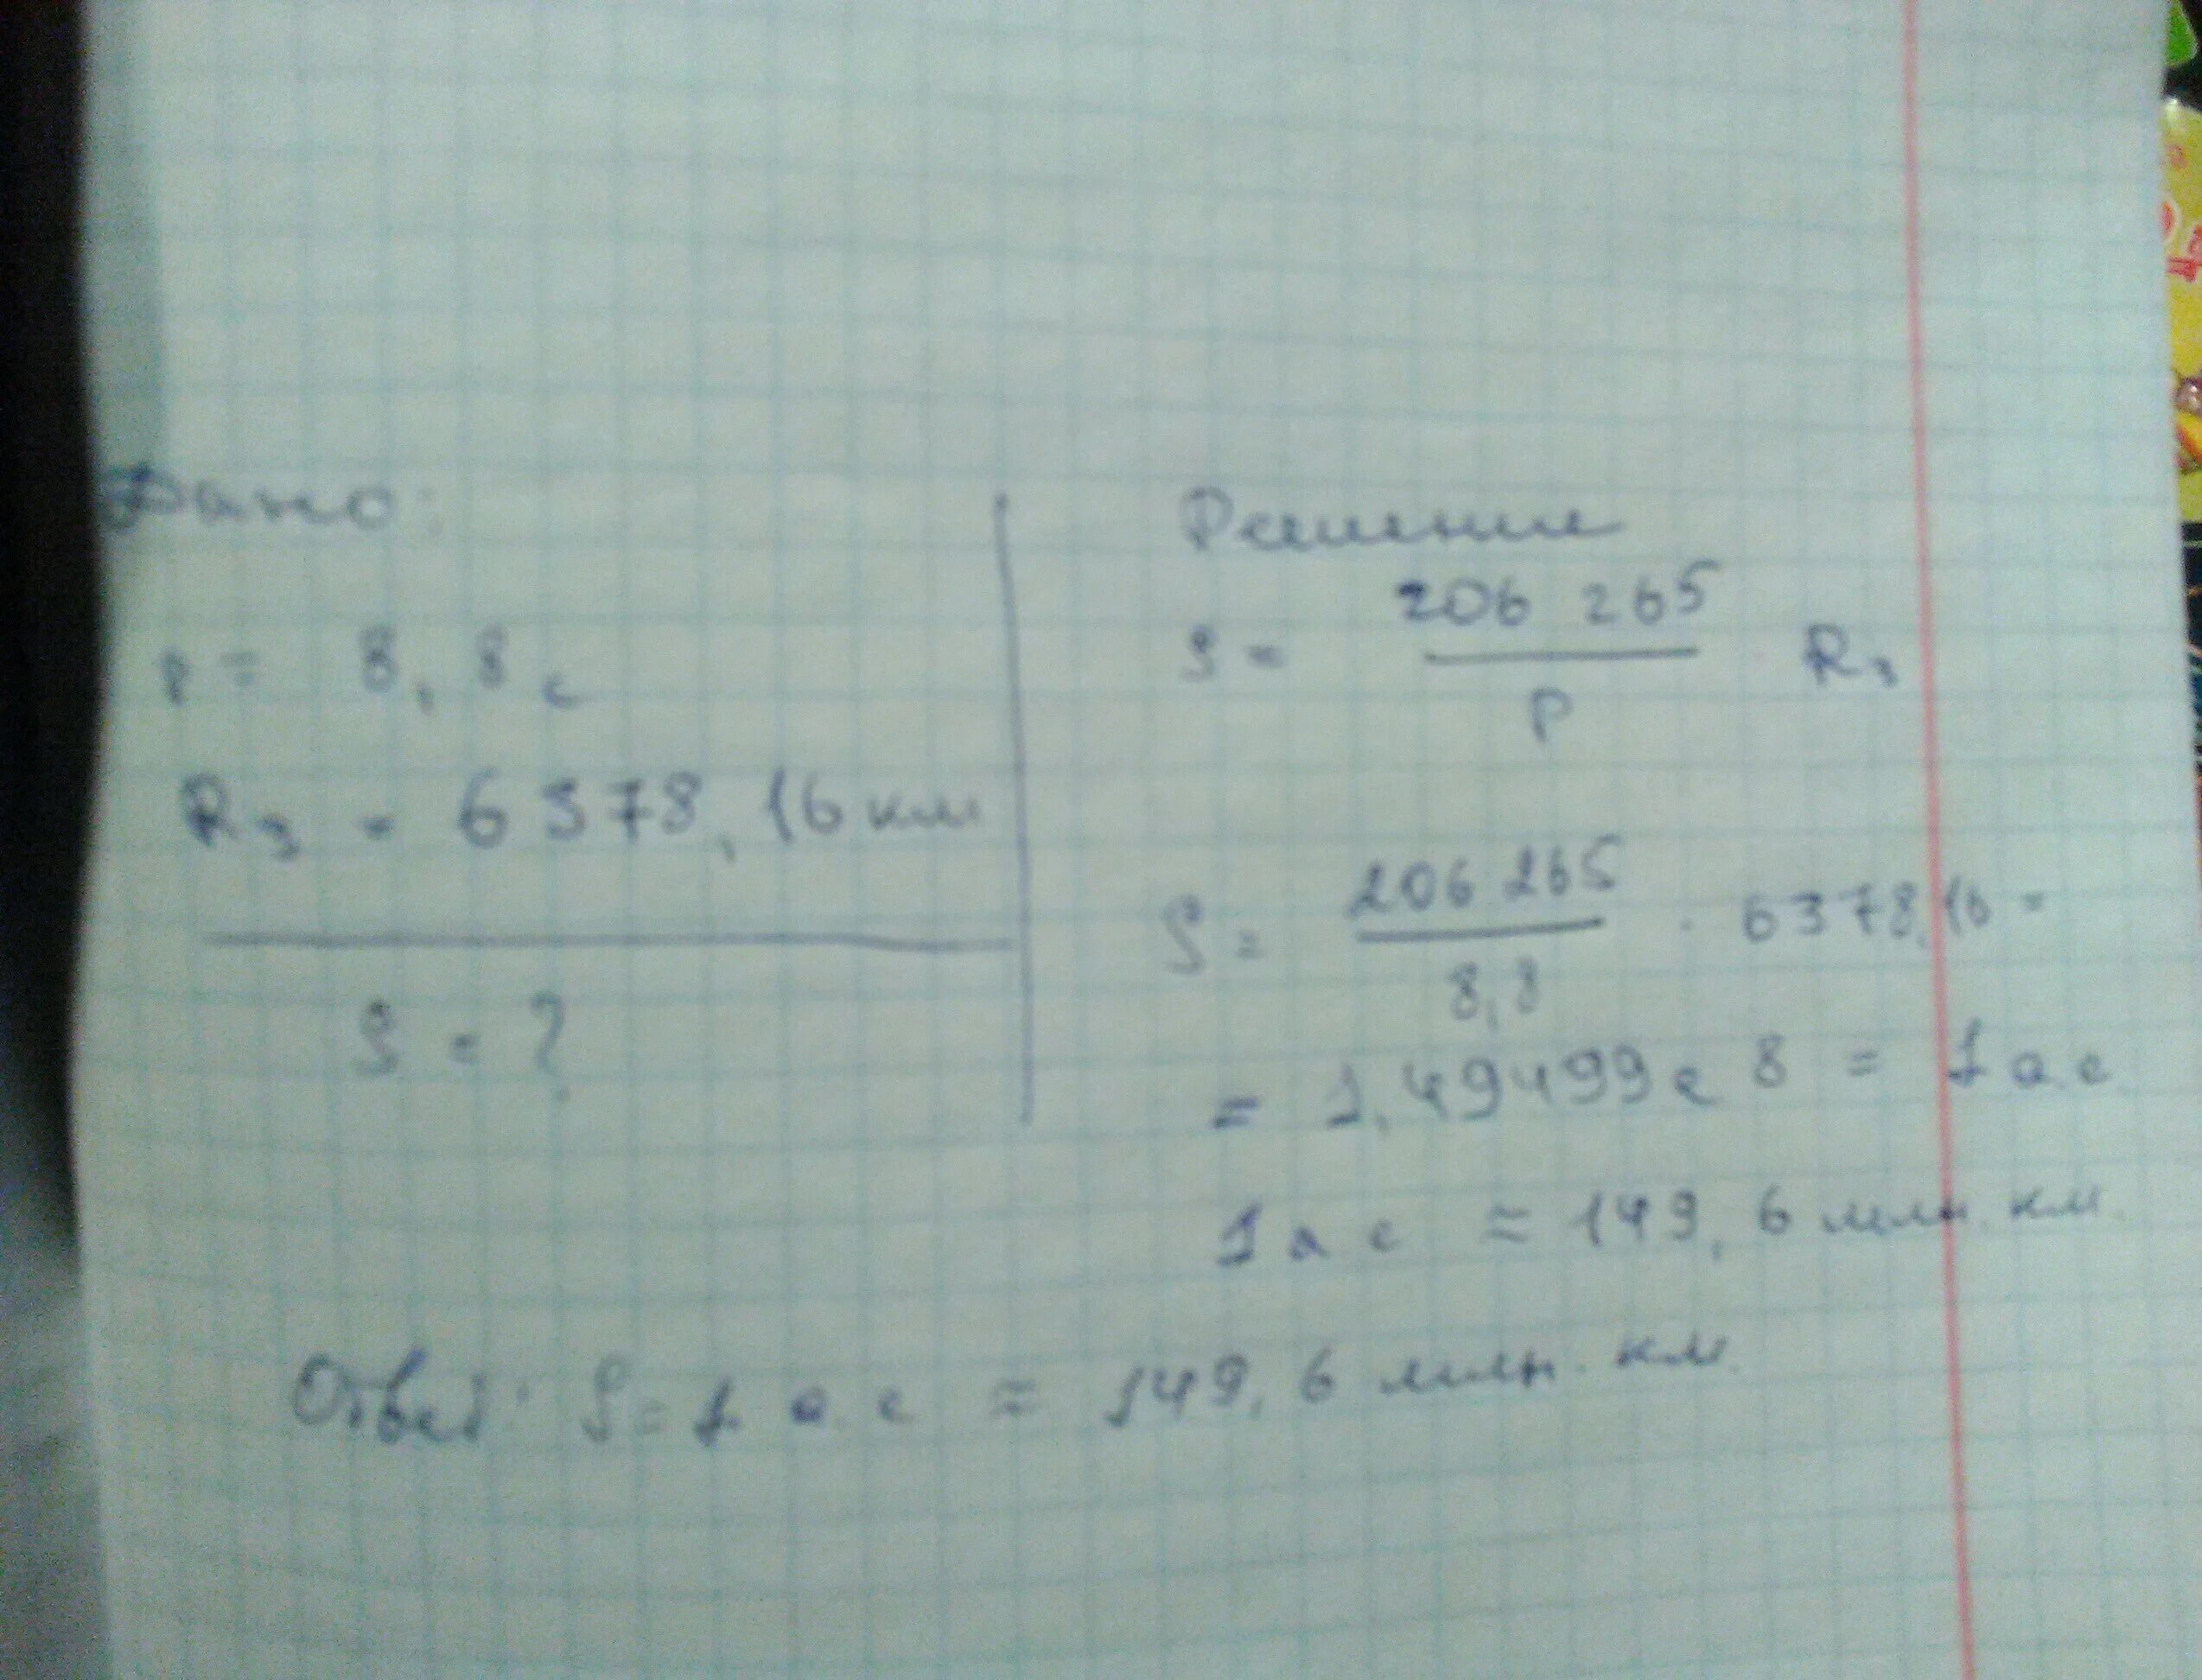 Дано:
p = 8,8 с
Rз = 6378,16 км
S = ?
Решение
S = 206 265 / P Rз
S = 206 265 / 8,8 · 6378,16 =
= 1,49499 е 8 = 1 а.е.
1 а е ≈ 149,6 млн. км.
Ответ: S = 1 а. е ≈ 149,6 млн. км.